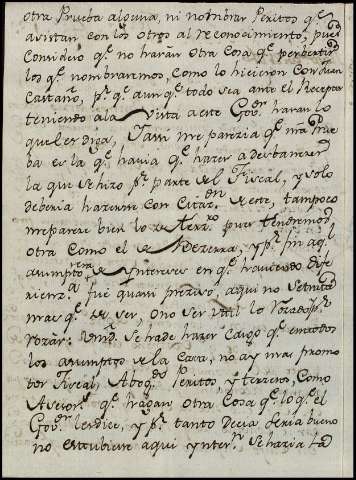 otra Prueba alguna, ni nombrar Peritos q.e
asistan con los otros al Reconocimiento, pues
Convidero q.e no harán otra Cosa q.e perbertir
los q.e nombraremos, como lo hicieron con Juan
Castaño, p.r q.e aunq.e todo sea ante el Recepor
teniendo ala Vista a este Gov.or haran lo
que les diga, Tami me parezia q.e ma Prue
ba es la q.e havia q.e hazer a desbanezer
la que se hizo p.r parte del Fiscal, y solo
deberia hazerse con Citaz.on de este, tampoco
me pareze bien lo de terz.o pues tendremos
otra Como el de Dezerra, y p.r fin aq.l
asumpto era de Yntereses en q.e haviendo dife
rienz.a fue quasi prezisso, aqui no se trata
mas q.e de ser, o no ser util lo Rozado p.r
rozar: Vm.d se hade hazer cargo q.e en todos
los asumptos de la Casa, no ay mas promo
tor Fiscal, Abog.os Peritos, y terzeros, Como
Asesor.s q.e hagan otra Cosa q.e lo q.e el
Gov.or les dice, y p.r tanto decia seria bueno
no estubiere aqui ynter.n se hazia la